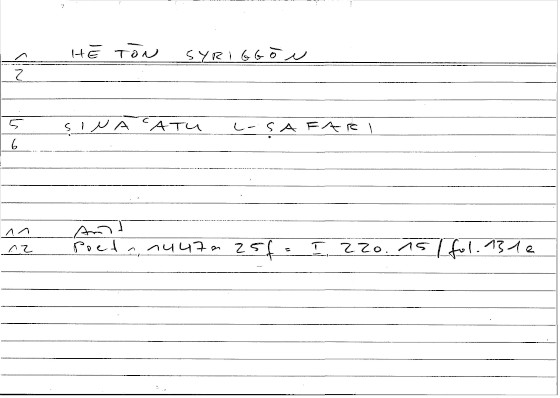 1 HĒ TŌN SYRIGGŌN
2
5 ṢINĀʿATU L-ṢAFARI
6
11 Arist
12 Poet 1, 1447a 25f = I, 220.15/fol.131a